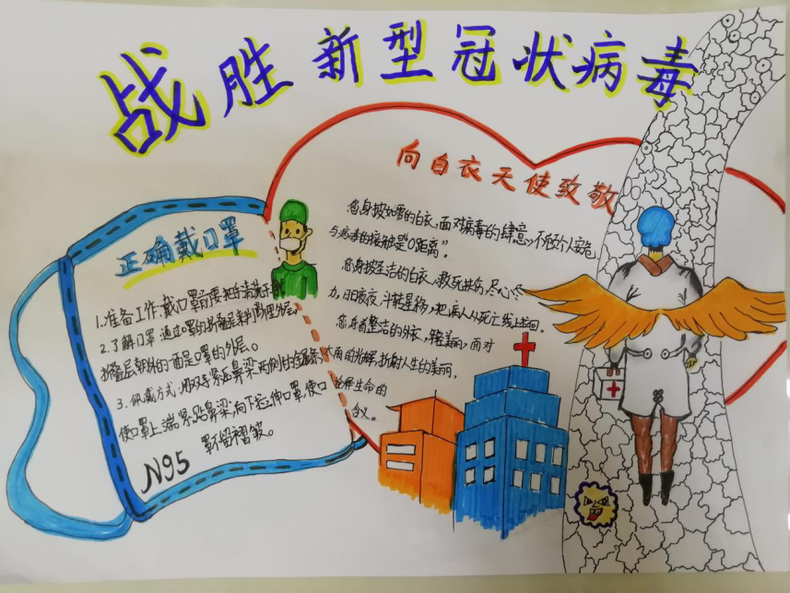 战胜新型冠状病毒
向白衣天使致敬
您身披如雪的白衣,面对病毒的肆意,不顾个人安危
与病毒的接触是"0距离"。
您身披圣洁的白衣,救死扶伤,尽心尽
力,日日夜夜,斗转星移,把病人从死亡线上拉回。
您身着整洁的外衣,美丽,面对
的光辉,折射人生的美丽,
生命的
含义。
正确戴口罩
1.准备工作:戴口罩前要把手清洗干
2.了解口罩:通过口罩的折叠层来判断里外层。
折叠层朝外的面是口罩的外层。
3.佩戴方式:用双手紧压鼻梁两侧的金属条
使口罩上端紧贴鼻梁,向下拉伸口罩,使口
罩不留褶皱。
N95